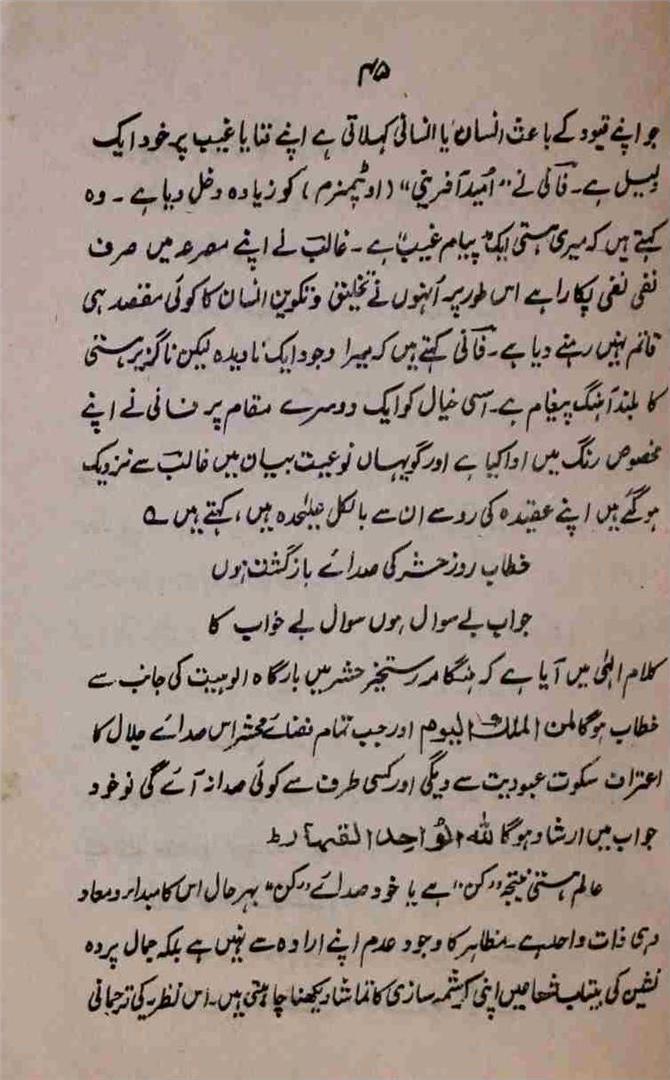 ۴۵
جو اپنے قیود کے باعث انسان یا انسانی کہلاتی ہے اپنے قنا یا غیب پر خود ایک
دلیل ہے۔ فانی نے "امید آفرینی" (اوپٹمزم) کو زیادہ دخل دیا ہے۔ وہ
کہتے ہیں کہ میری ہستی ایک "پیام غیب" ہے۔ غالب نے اپنے مصرعہ میں صرف
نفی نفی پکارا ہے اس طور پر اُنہوں نے تخلیق و تکوین انسان کا کوئی مقصد ہی
قائم نہیں رہنے دیا ہے۔ فانی کہتے ہیں کہ میرا وجود ایک نادیدہ لیکن ناگزیر ہستی
کا بلند آہنگ پیغام ہے۔ اسی خیال کو ایک دوسرے مقام پر فانی نے اپنے
مخصوص رنگ میں ادا کیا ہے اور گو یہاں نوعیت بیان میں غالب سے نزدیک
ہو گئے ہیں اپنے عقیدہ کی رو سے ان سے بالکل علیٰحدہ ہیں، کہتے ہیں ؎
خطاب روز حشر کی صدائے بازگشت ہوں
جواب بے سوال ہوں سوال بے جواب کا
کلام الہٰی میں آیا ہے کہ ہنگامہ رستخیز حشر میں بارگاہ الوہیت کی جانب سے
خطاب ہوگا لمن الملك اليوم اور جب تمام فضائے محشر اس صدائے جلال کا
اعتراف سکوت عبودیت سے دیگی اور کسی طرف سے کوئی صدا نہ آئے گی تو خود
جواب میں ارشاد ہوگا لله الواحد القهار ط
عالم ہستی نتیجہ "کن" ہے یا خود صدائے "کن" بہر حال اس کا مبداء و معاد
وہی ذات واحد ہے۔ مظاہر کا وجود عدم اپنے ارادہ سے نہیں ہے بلکہ جمال پردہ
نشین کی بیتاب شعاعیں اپنی کرشمہ سازی کا تماشا دیکھنا چاہتی ہیں۔ اس نظریہ کی ترجمانی